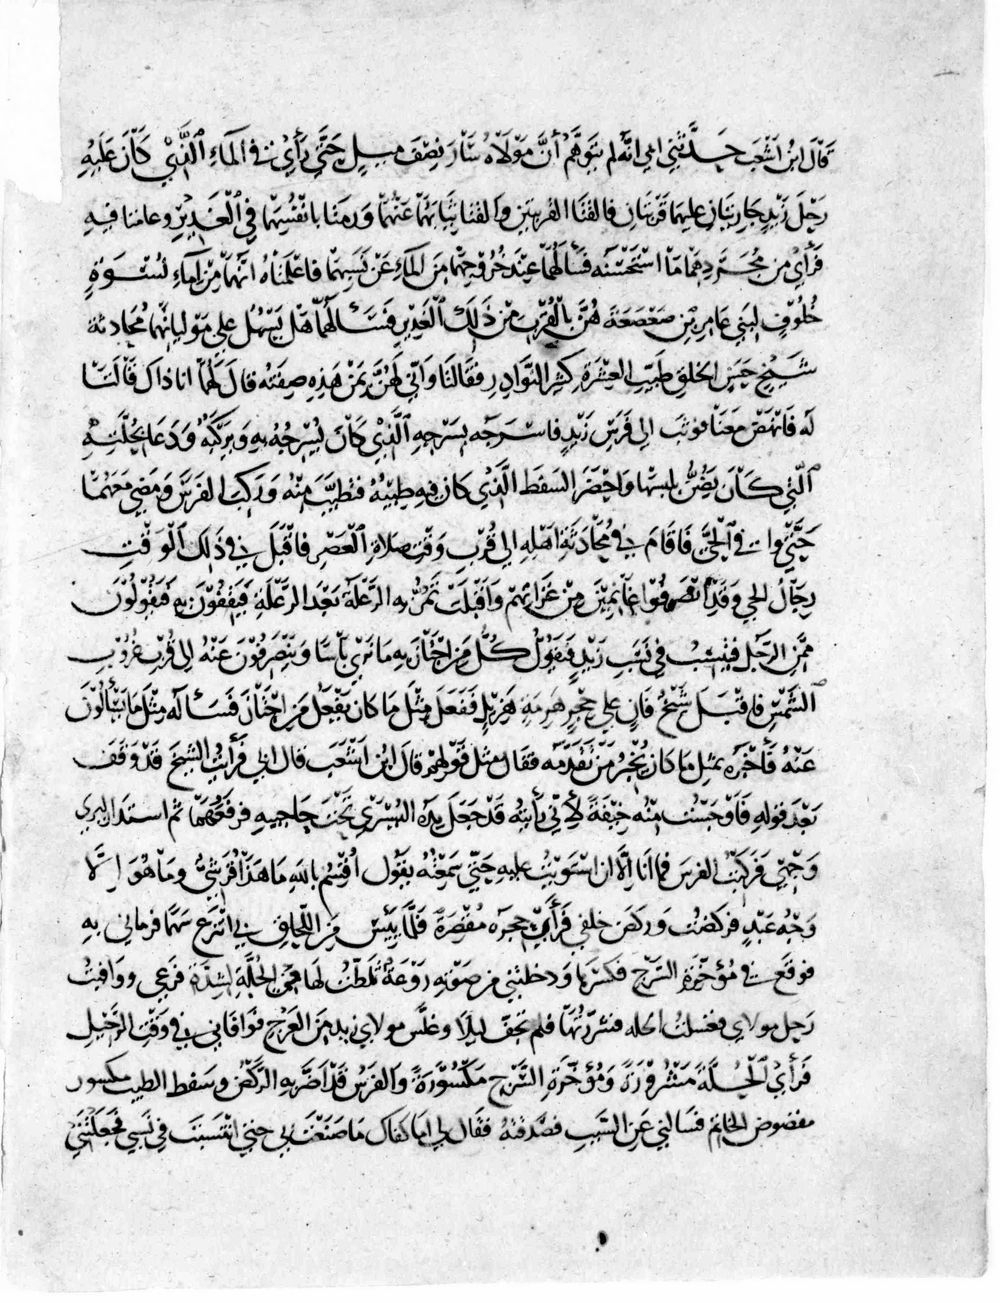 قَالَ ابن اَشْعَب حَدَّثَنِي ابي انَّه لم يتوهَّم أنَّ مَوْلَاهُ سَارَ نِصْفَ مِيلٍ حَتَّى رَأى في المَاءِ الَّذِي كَانَ عَلَيْهِ
رَحْل زَيْدٍ جَارِيَتَانِ عليهما قربتان فالقتا القربتين والقتا ثيابَهُمَا عَنْهُمَا وَرمتا بانْفُسِهِمَا فِي الْغَدِيرِ وعامتا فيه
فَرَأى من مُجَرَّدهما مَا اسْتَحْسَنَه فَسَألَهُمَا عِنْدَ خُرُوجِهِمَا مِنَ المَاءِ عَنْ نَسَبِهِمَا فاعْلَمَتَاهُ انَّهُمَا مِنْ اماءِ لِنِسْوَةٍ
خُلُوفٍ لبني عَامِر بْن صَعْصَعَة هُنَّ بالْقُرْبِ مِنْ ذَلِكَ الْغَدِير فَسَألَهُمَا هَل يَسْهُلُ على مَوْلياتِهِمَا مُحَادثة
شَيْخٍ حَسَنِ الخلق طَيِّبِ العِشْرَةِ كثير النَّوَادِرِ فقَالتَا وَانَّى لَهُنَّ بِمَنْ هَذِهِ صِفَتُه قالَ لَهُمَا انا ذاك قَالَتَا
له فَانْهَضْ مَعَنَا فوثب الى فَرَسِ زَيْدٍ فاسْرَجَه بِسَرْجِهِ الَّذِي كَانَ يُسْرِجُهُ بِهِ وَيركَبُهُ وَدَعَا بِحُلَّتِهِ
الَّتي كَانَ يَضُنُّ بلبسها وَاحْضَرَ السَّفَط الَّذِي كان فيه طِيبُهُ فتطيَّبَ مِنْهُ وَرَكِبَ الفرَسَ وَمَضى مَعَهُمَا
حَتَّى وافى الْحَيَّ فَاقَامَ في مُحَادَثَةِ اهْلِهِ الى قُرْبِ وَقْتِ صَلاةِ الْعَصْرِ فاقْبَلَ في ذَلِكَ الْوَقْتِ
رِجَالُ الحي وَقَدِ انْصَرَفُوا غَانِمِينَ مِنْ غَزَاتِهِمْ وَاَقْبَلَتْ تَمُرُّ به الرَّعْلَة بَعْدَ الرَّعْلَةِ فَيَقِفُوْنَ بِهِ فَيَقُوْلُوْنَ
مِمَّنِ الرَّجُل فينتسِبُ في نَسَبِ زَيْدٍ فيَقُولُ كُلُّ مَنِ اجْتَازَ به مَا نَرَى بَأسًا وَيَنْصَرِفُوْنَ عَنْهُ الى قُرْبِ غُرُوبِ
الشَّمْسِ فاقبَلَ شَيْخٌ فَانٍ على حِجْرٍ هَرِمَةٍ هَزِيلٍ فَفَعَلَ مِثْلَ مَا كان يَفْعَلُ مَنِ اجْتَازَ فَسَألَهُ مِثْلَ مَا يَسْألُوْنَ
عَنْهُ فَأخْبَرَه بمثل مَا كان يُخْبِرُ مَنْ تَقَدَّمَه فقال مثل قَوْلِهم قالَ ابن اَشْعَب قال ابي فَرَأيْتُ الشَّيْخَ قَدْ وَقَفَ
بَعْدَ قَولهِ فَاَوْجَسْتُ مِنْهُ خِيْفَةً لأنِّي رأيته قَدْ جَعَلَ يَدَهُ اليُسْرَى تَحْتَ حَاجِبيهِ فرفَعَهُمَا ثم استدَار ليرى
وَجْهِي فَرَكِبْتُ الفرسَ فما انَا الَّا ان اسْتَوَيْتُ عليهِ حَتَّى سَمِعْتُه يقُول اُقْسِمُ باللهِ مَا هَذَا قُرَشِيٌّ وَمَا هُوَ اِلَّا
وَجْهُ عَبْدٍ فركضْتُ وَركَضَ خلفي فَرَأى حِجْرَه مُقْصِرَةً فَلَمَّا يَئِسَ مِنَ اللَّحَاقِ بي انْتَزَعَ سَهْمًا فرماني بِهِ
فوقعَ في مُؤخِرَةِ السَّرْجِ فكسَرَهَا وَدخلتني مِن صَوْتِهِ رَوْعَةٌ لها في الحُلَّةِ لِشِدَّة فزعي ووافيتُ
رَحل مولاي فغسلتُ الحلة فنشَرْتُهَا فلم تجف ليلًا وغلَّس مولاي زيد مِنَ العَرْجِ فوافاني في وَقْتِ الرَّحِيلِ
فَرَأى الْحُلَّةَ مَنْشُوْرَةً وَمُؤخِّرَةَ السَّرْجِ مَكْسُوْرَةً وَالفَرَسَ قَدْ اَضَرَّ بِهِ الرَّكْضُ وسَفط الطيب مكسور
مفضوض الخاتم فسَالني عَنِ السَّبَبِ فصَدَقتهُ فقَال لي اما كفاك مَا صَنَعْتَ بي حتى انْتسَبتَ في نسبي فجَعَلْتَنِي